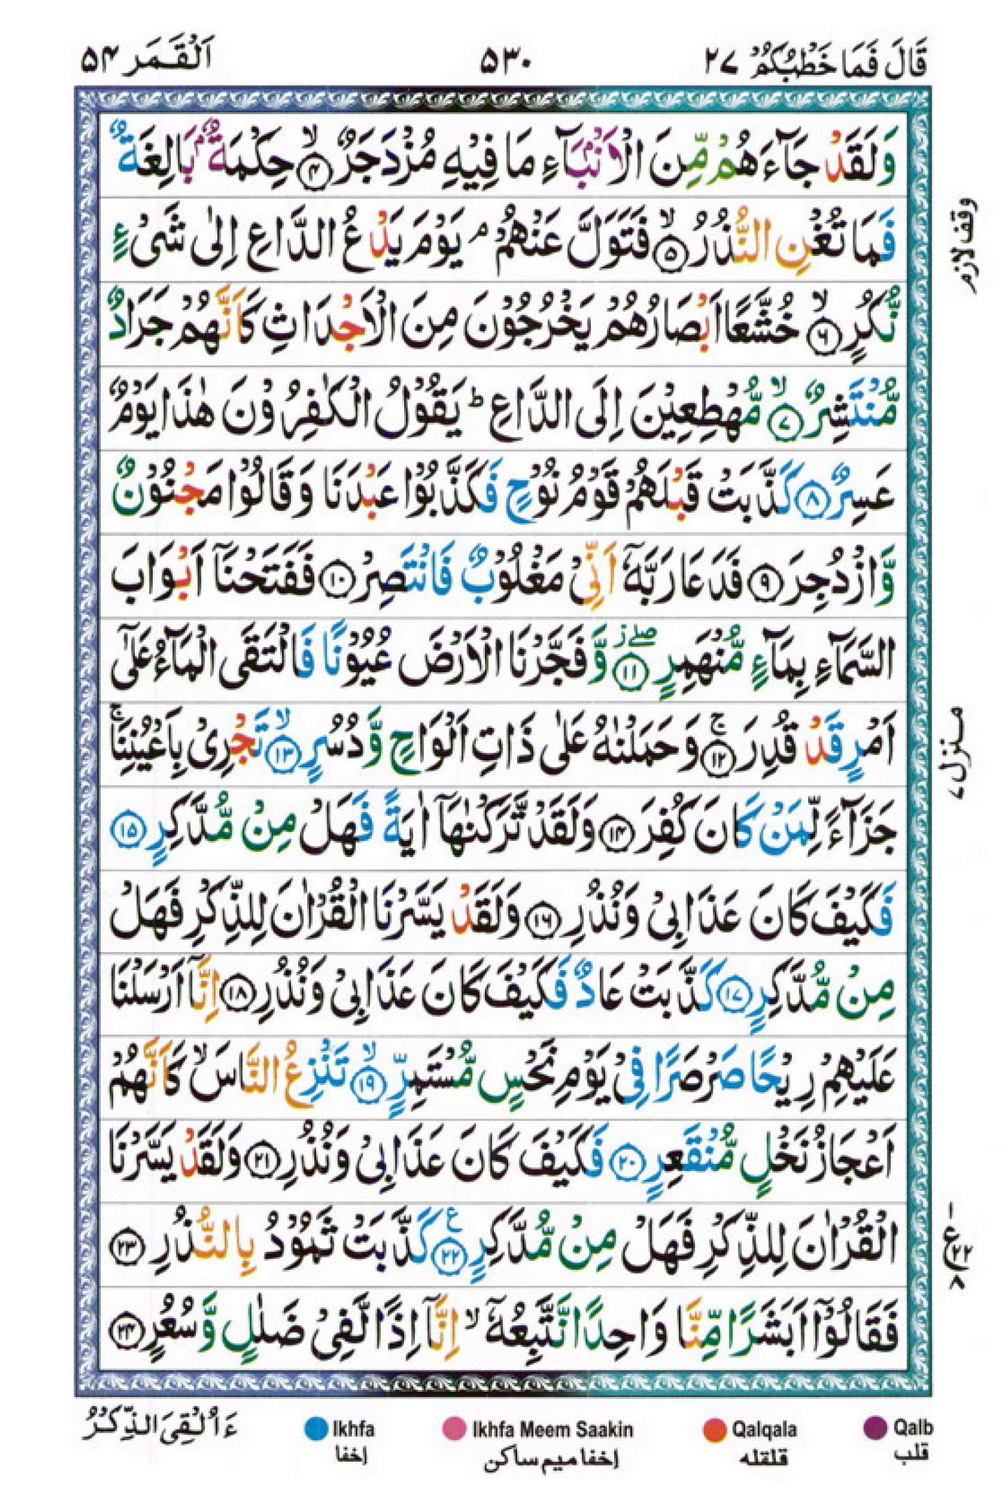 قَالَ فَمَا خَطْبُكُمْ ۲۷
۵۳۰
اَلْقَمَر ۵۴
وَلَقَدْ جَآءَهُمْ مِّنَ الْاَنْۢبَآءِ مَا فِيْهِ مُزْدَجَرٌ ۙ‏﴿۴﴾ حِكْمَةٌۢ بَالِغَةٌ
فَمَا تُغْنِ النُّذُرُ ۙ‏﴿۵﴾ فَتَوَلَّ عَنْهُمْ ۘ يَوْمَ يَدْعُ الدَّاعِ اِلٰى شَىْءٍ
نُّكُرٍ ۙ‏﴿۶﴾ خُشَّعًا اَبْصَارُهُمْ يَخْرُجُوْنَ مِنَ الْاَجْدَاثِ كَاَنَّهُمْ جَرَادٌ
مُّنْتَشِرٌ ۙ‏﴿۷﴾ مُّهْطِعِيْنَ اِلَى الدَّاعِ ؕ يَقُوْلُ الْكٰفِرُوْنَ هٰذَا يَوْمٌ
عَسِرٌ ﴿۸﴾ كَذَّبَتْ قَبْلَهُمْ قَوْمُ نُوْحٍ فَكَذَّبُوْا عَبْدَنَا وَقَالُوْا مَجْنُوْنٌ
وَّازْدُجِرَ ﴿۹﴾ فَدَعَا رَبَّهٗۤ اَنِّىْ مَغْلُوْبٌ فَانْتَصِرْ ﴿۱۰﴾ فَفَتَحْنَاۤ اَبْوَابَ
السَّمَآءِ بِمَآءٍ مُّنْهَمِرٍ ۖ ﴿۱۱﴾ وَّفَجَّرْنَا الْاَرْضَ عُيُوْنًا فَالْتَقَى الْمَآءُ عَلٰٓى
اَمْرٍ قَدْ قُدِرَ ۚ‏﴿۱۲﴾ وَحَمَلْنٰهُ عَلٰى ذَاتِ اَلْوَاحٍ وَّدُسُرٍ ۙ‏﴿۱۳﴾ تَجْرِىْ بِاَعْيُنِنَا ۚ
جَزَآءً لِّمَنْ كَانَ كُفِرَ ﴿۱۴﴾ وَلَقَدْ تَّرَكْنٰهَاۤ اٰيَةً فَهَلْ مِنْ مُّدَّكِرٍ ﴿۱۵﴾
فَكَيْفَ كَانَ عَذَابِىْ وَنُذُرِ ﴿۱۶﴾ وَلَقَدْ يَسَّرْنَا الْقُرْاٰنَ لِلذِّكْرِ فَهَلْ
مِنْ مُّدَّكِرٍ ﴿۱۷﴾ كَذَّبَتْ عَادٌ فَكَيْفَ كَانَ عَذَابِىْ وَنُذُرِ ﴿۱۸﴾ اِنَّاۤ اَرْسَلْنَا
عَلَيْهِمْ رِيْحًا صَرْصَرًا فِىْ يَوْمِ نَحْسٍ مُّسْتَمِرٍّ ۙ‏﴿۱۹﴾ تَنْزِعُ النَّاسَ ۙ كَاَنَّهُمْ
اَعْجَازُ نَخْلٍ مُّنْقَعِرٍ ﴿۲۰﴾ فَكَيْفَ كَانَ عَذَابِىْ وَنُذُرِ ﴿۲۱﴾ وَلَقَدْ يَسَّرْنَا
الْقُرْاٰنَ لِلذِّكْرِ فَهَلْ مِنْ مُّدَّكِرٍ ﴿۲۲﴾ع كَذَّبَتْ ثَمُوْدُ بِالنُّذُرِ ﴿۲۳﴾
فَقَالُوْۤا اَبَشَرًا مِّنَّا وَاحِدًا نَّتَّبِعُهٗۤ ۙ اِنَّاۤ اِذًا لَّفِىْ ضَلٰلٍ وَّسُعُرٍ ﴿۲۴﴾
وقف لازم
منزل ۷
ع ۲۲
ءَاُلْقِىَ الذِّكْرُ
Ikhfa
إخفا
Ikhfa Meem Saakin
إخفا ميم ساكن
Qalqala
قلقله
Qalb
قلب